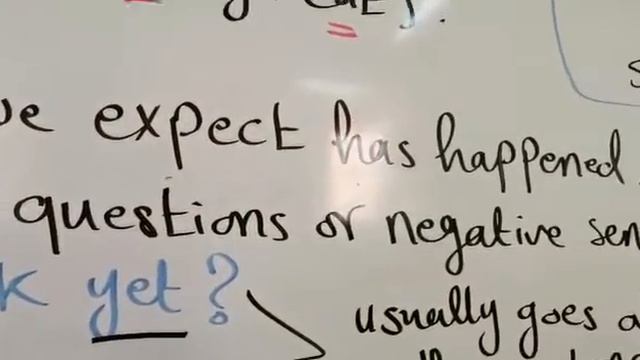 expect has happened
questions or negative
yet?
usually goes